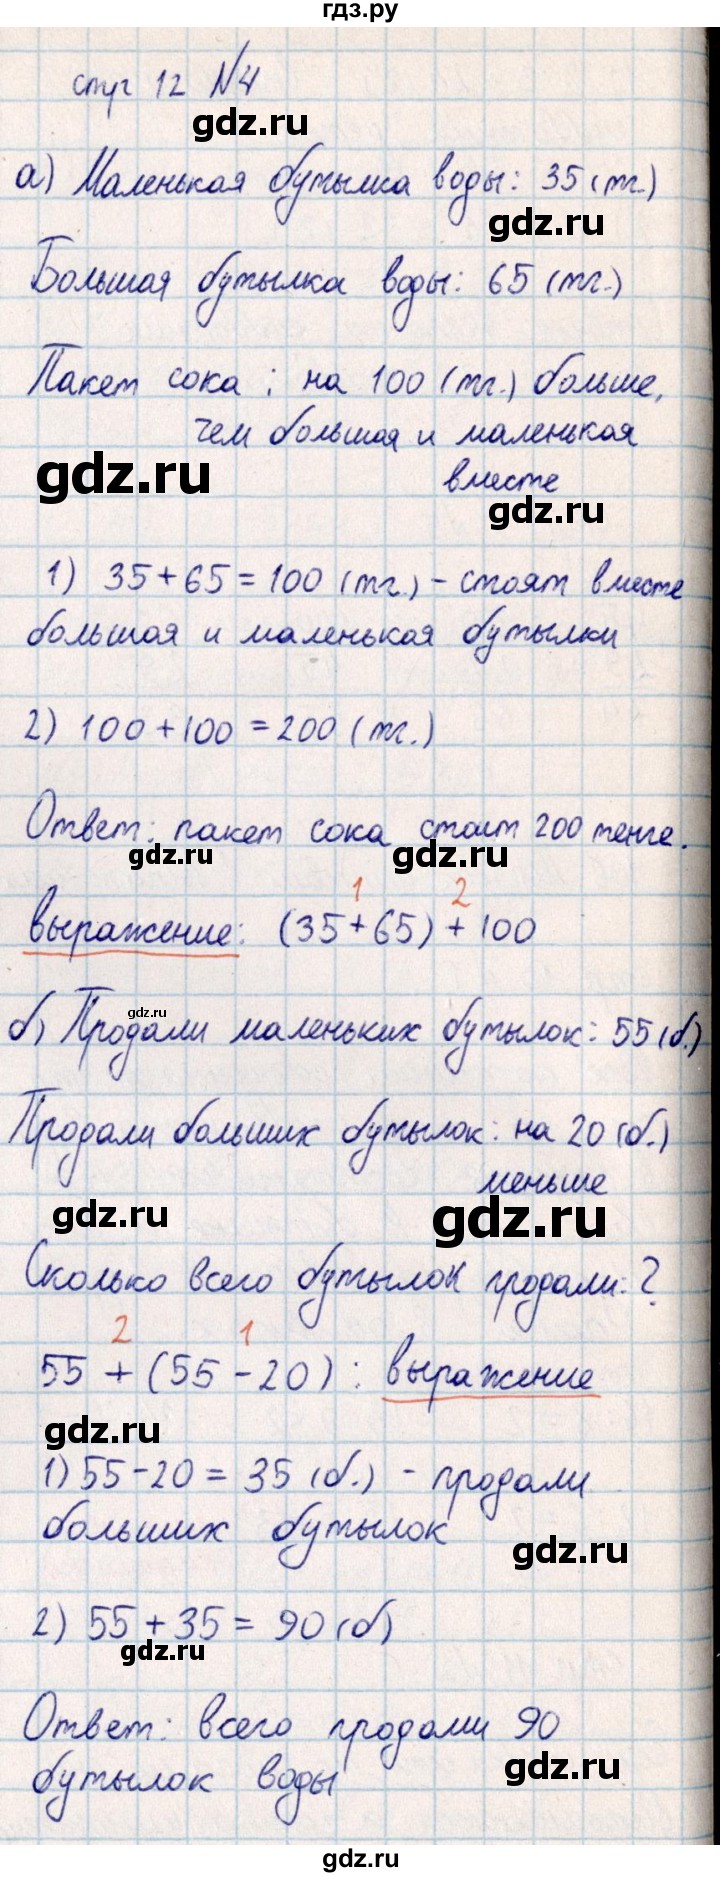 гдз.ру
стр 12 №4
gdz.ru
а) Маленькая бутылка воды: 35 (тг.)
gdz.ru
Большая бутылка воды: 65 (тг.)
Пакет сока: на 100 (тг.) больше,
чем большая и маленькая
gdz.ru
вместе
gdz.ru
1) 35+65=100 (тг.) - стоят вместе
большая и маленькая бутылки
2) 100+100=200 (тг.)
Ответ: пакет сока стоит 200 тенге.
gdz.ru gdz.ru
1 2
выражение: (35+65)+100
gdz.ru
б) Продали маленьких бутылок: 55 (б.)
Продали больших бутылок: на 20 (б.)
меньше
gdz.ru gdz.ru
Сколько всего бутылок продали: ?
2 1
55+(55-20): выражение
gdz.ru
1) 55-20=35 (б.) - продали
больших бутылок
gdz.ru
2) 55+35=90 (б)
gdz.ru
Ответ: всего продали 90
бутылок воды
gdz.ru
gdz.ru